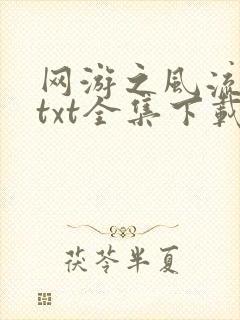 网游之风流
txt全集下载
茯苓半夏